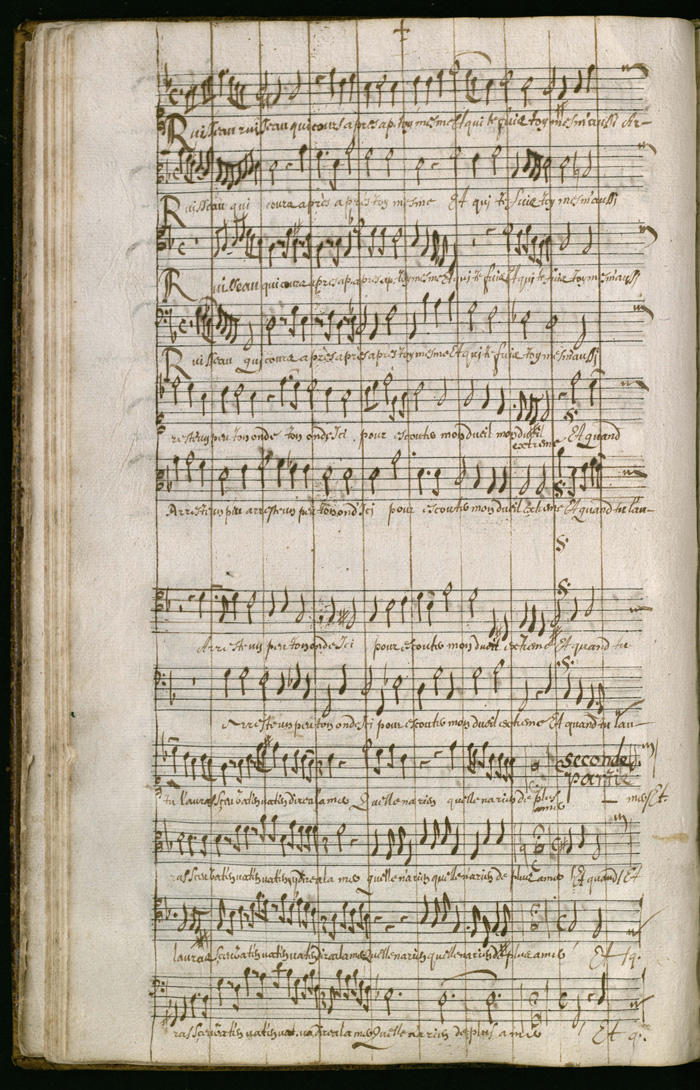 Ruisseau ruisseau qui cours apres ap. toy mesme Et qui te fuis toy mesm'aussi Ar-
Ruisseau qui cours après après toy mesme Et qui te fuis toy mesm'aussi
Ruisseau qui cours apres ap. apres ap. toy mesme Et qui te fuis Et qui te fuis toy mesm'aussi
Ruisseau qui cours après apres apres toy mesme Et qui te fuis toy mesm'aussi
reste un peu ton onde ton onde Ici pour escouter mon dueil mon dueil extreme Et quand
Arreste un peu arreste un peu ton ond'Ici pour escouter mon dueil extreme Et quand tu l'au-
Arreste un peu ton onde Ici pour escouter mon dueil extreme Et quand tu
Arreste un peu ton onde Ici pour escouter mon dueil extreme Et quand tu l'au-
seconde partie
tu l'auras va dire a la mer Qu'elle n'a rien qu'elle n'a rien de plus amer
ras va dire a la mer qu'elle n'a rien qu'elle n'a rien de plus amer Et quand Et
l'auras dire a la mer Qu'elle n'a rien qu'elle n'a rien de plus amer Et q.
ras dire a la mer Qu'elle n'a rien de plus amer Et q.